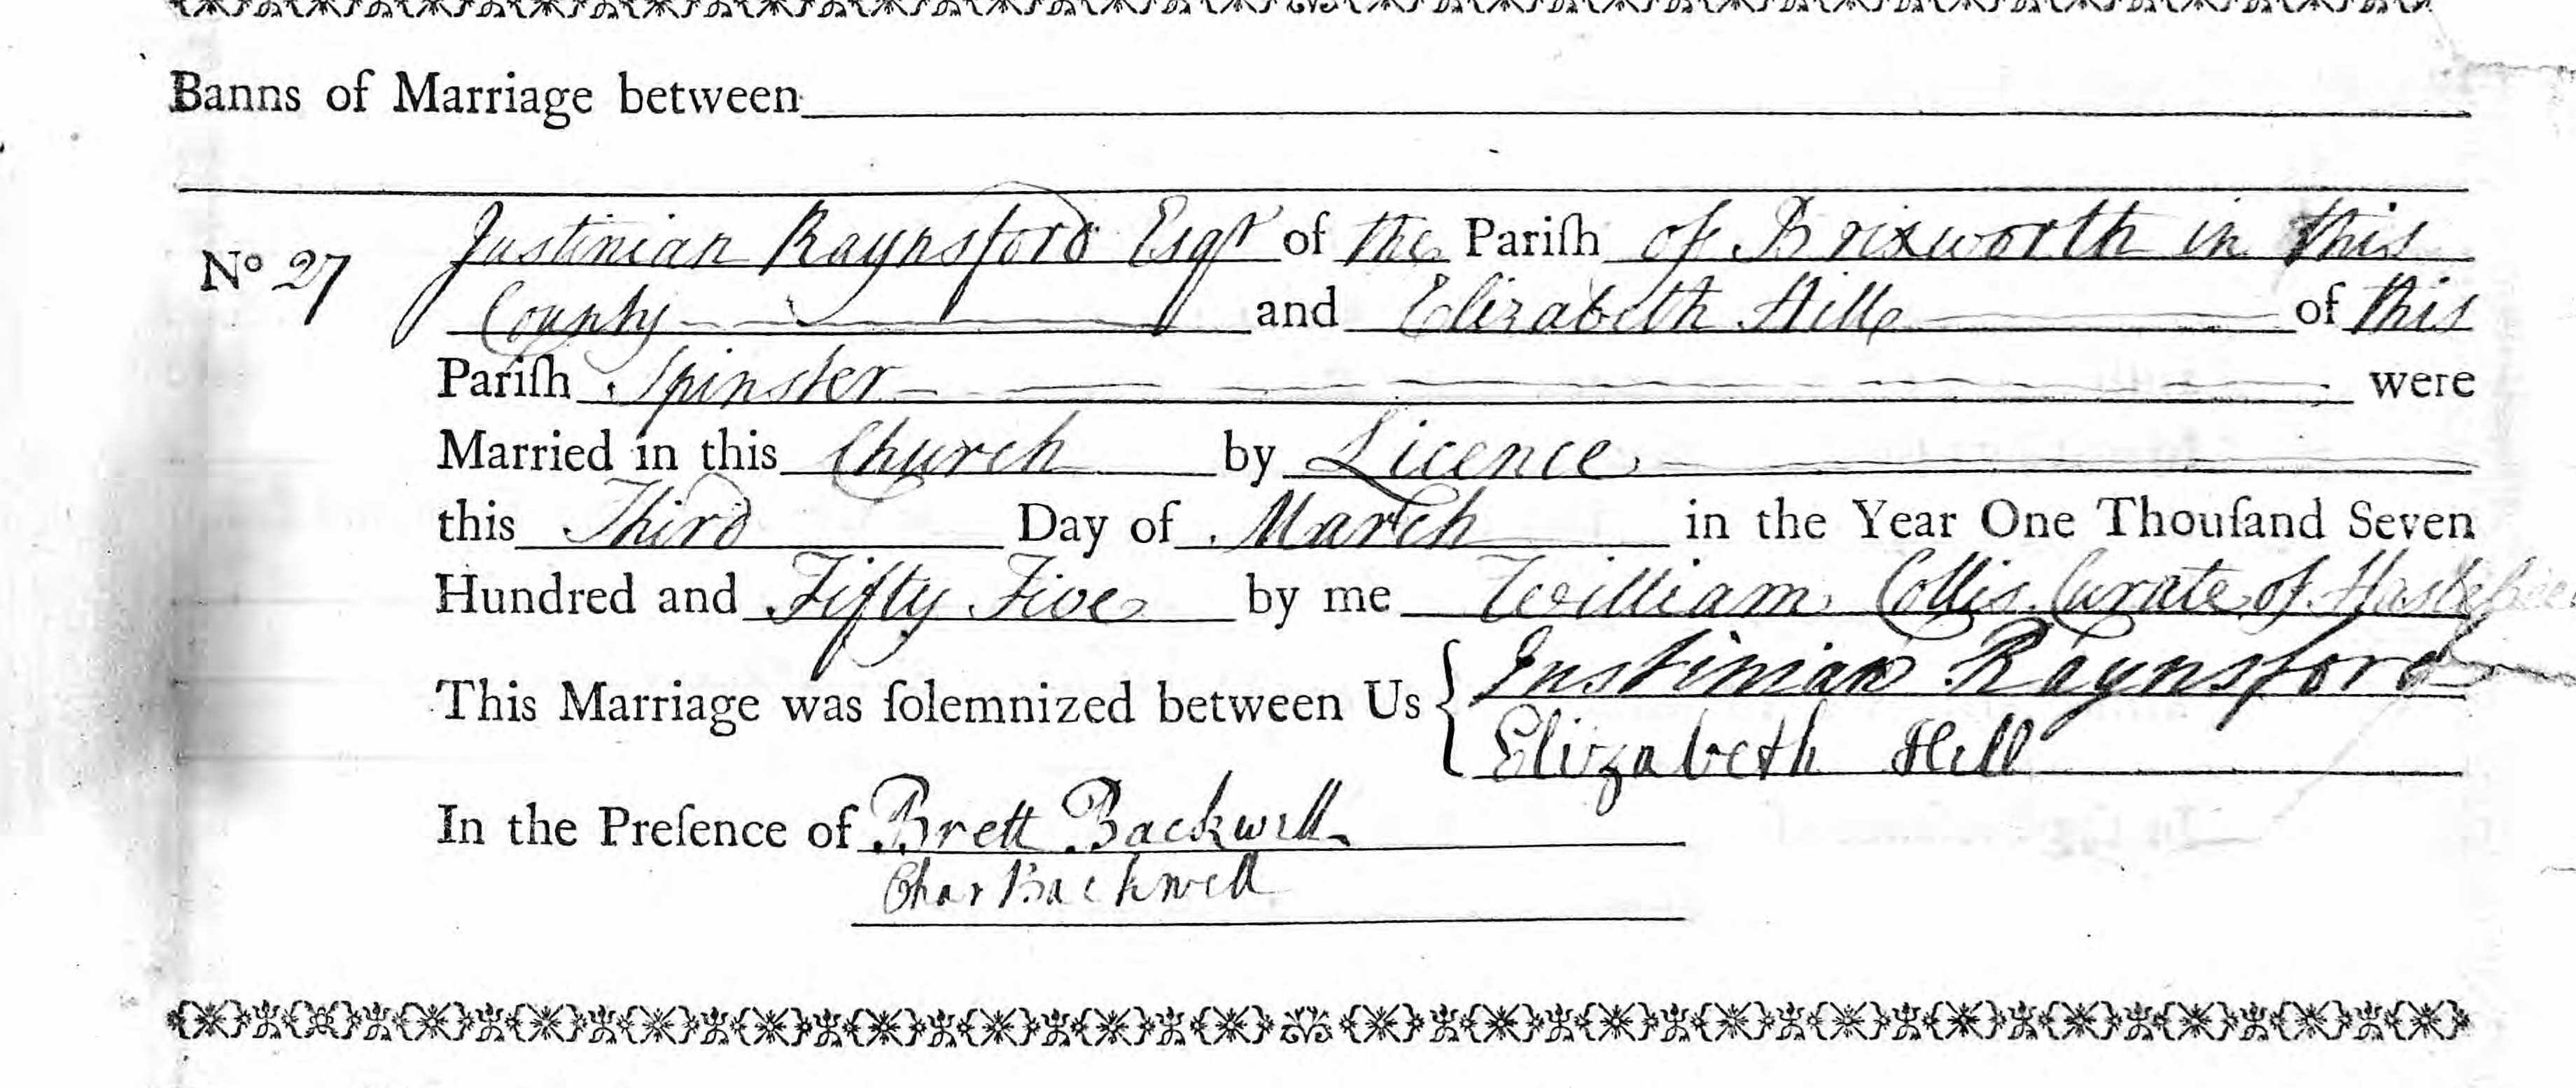 Banns of Marriage between
No 27 Justinian Raynsford Esqr of the Pariſh of Brixworth in this
County and Elizabeth Hill of this
Pariſh Spinster were
Married in this Church by Licence
this Third Day of March in the Year One Thouſand Seven
Hundred and Fifty Five by me William Collis Curate of
This Marriage was ſolemnized between Us { Justinian Raynsford
Elizabeth Hill
In the Preſence of Brett Backwell
Char Backwell